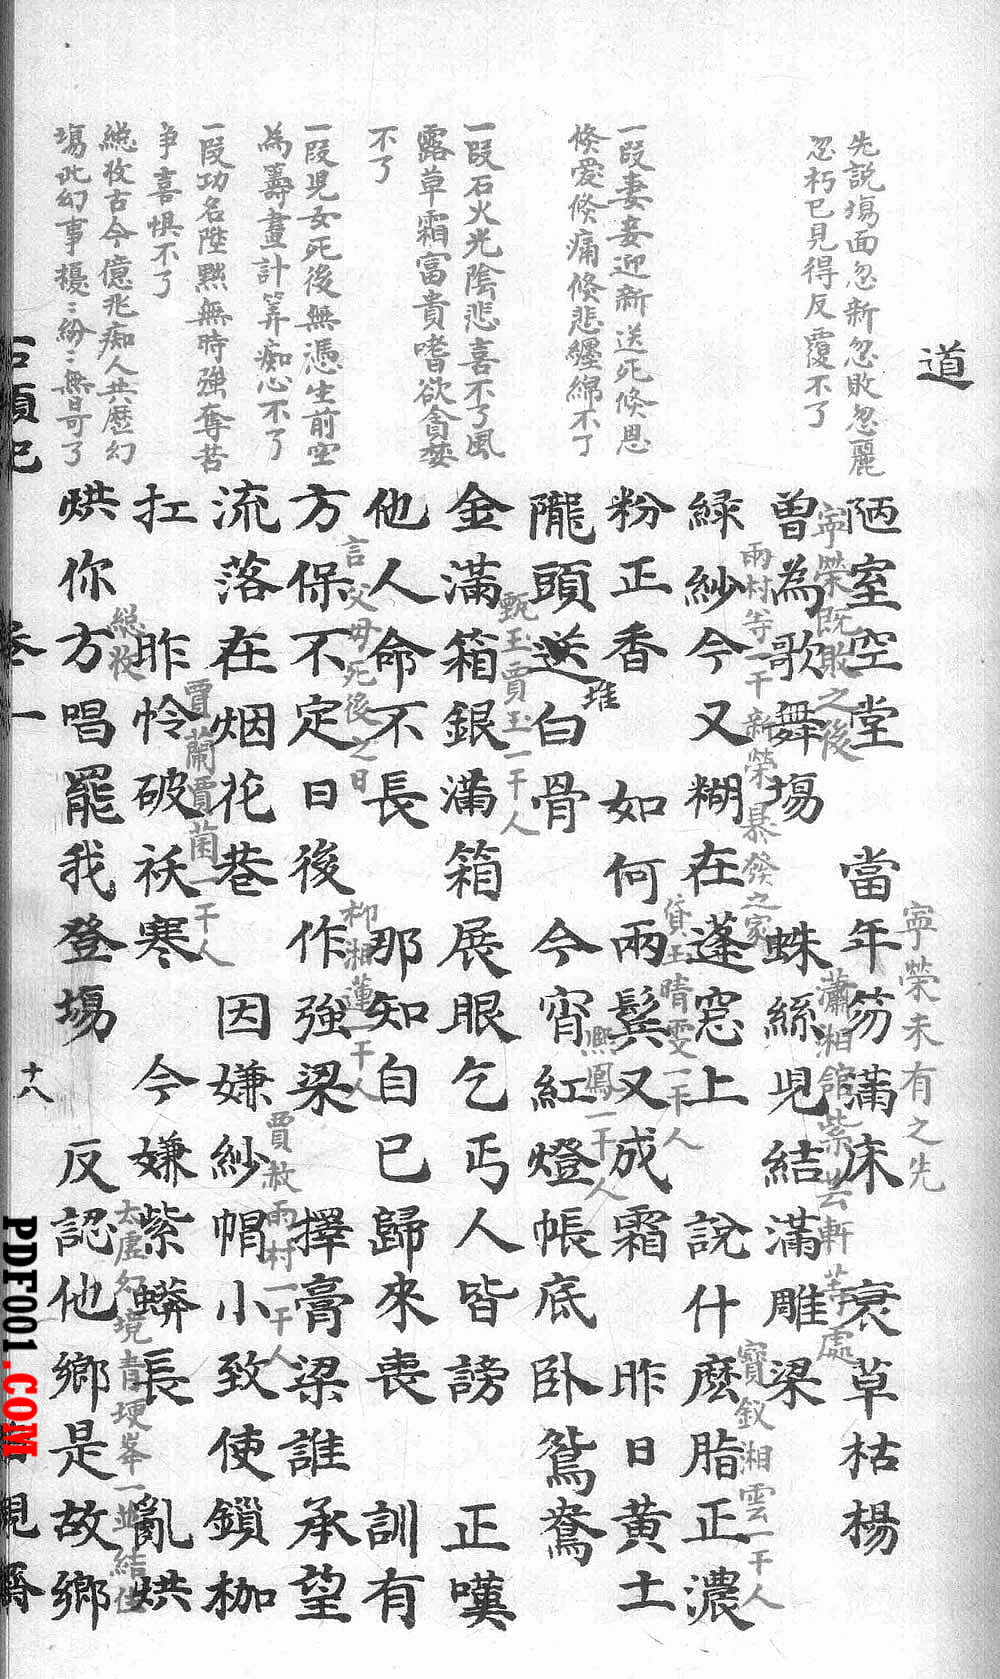 道
先説場面忽新忽敗忽麗
忽朽已見得反覆不了
陋室空堂 當年笏滿床 衰草枯楊
寧榮既敗之後
寧榮未有之先
曾為歌舞場 蛛絲兒結滿雕梁
瀟湘舘紫芸軒等處
雨村等一干新榮暴發之家
綠紗今又糊在蓬窓上 說什麼脂正濃
寳釵湘雲一干人
一段妻妾迎新送死倐恩
倐愛倐痛倐悲纏綿不了
粉正香 如何兩鬂又成霜 昨日黃土
黛玉晴雯一干人
隴頭送白骨 今宵紅燈帳底卧鴛鴦
堆
熈鳳一干人
一段石火光陰悲喜不了風
露草霜富貴嗜欲貪婪
不了
金滿箱銀滿箱展眼乞丐人皆謗 正嘆
甄玉賈玉一干人
他人命不長 那知自已歸來喪 訓有
一段兒女死後無憑生前空
為壽畫計算痴心不了
方保不定日後作強梁 擇膏粱誰承望
言父母死後之日
柳湘蓮一干人
一段功名陞黜無時強奪苦
爭喜惧不了
流落在烟花巷 因嫌紗帽小致使鎖枷
賈赦雨村一干人
扛 昨怜破袄寒 今嫌紫蟒長 亂烘
賈蘭賈菌一干人
總收古今億兆痴人共歷幻
場此幻事擾〻紛〻無日可了
烘你方唱罷我登場 反認他鄉是故鄉
總收
太虛幻境青埂峯一並結住
石頭記 卷一 十八
PDF001.COM